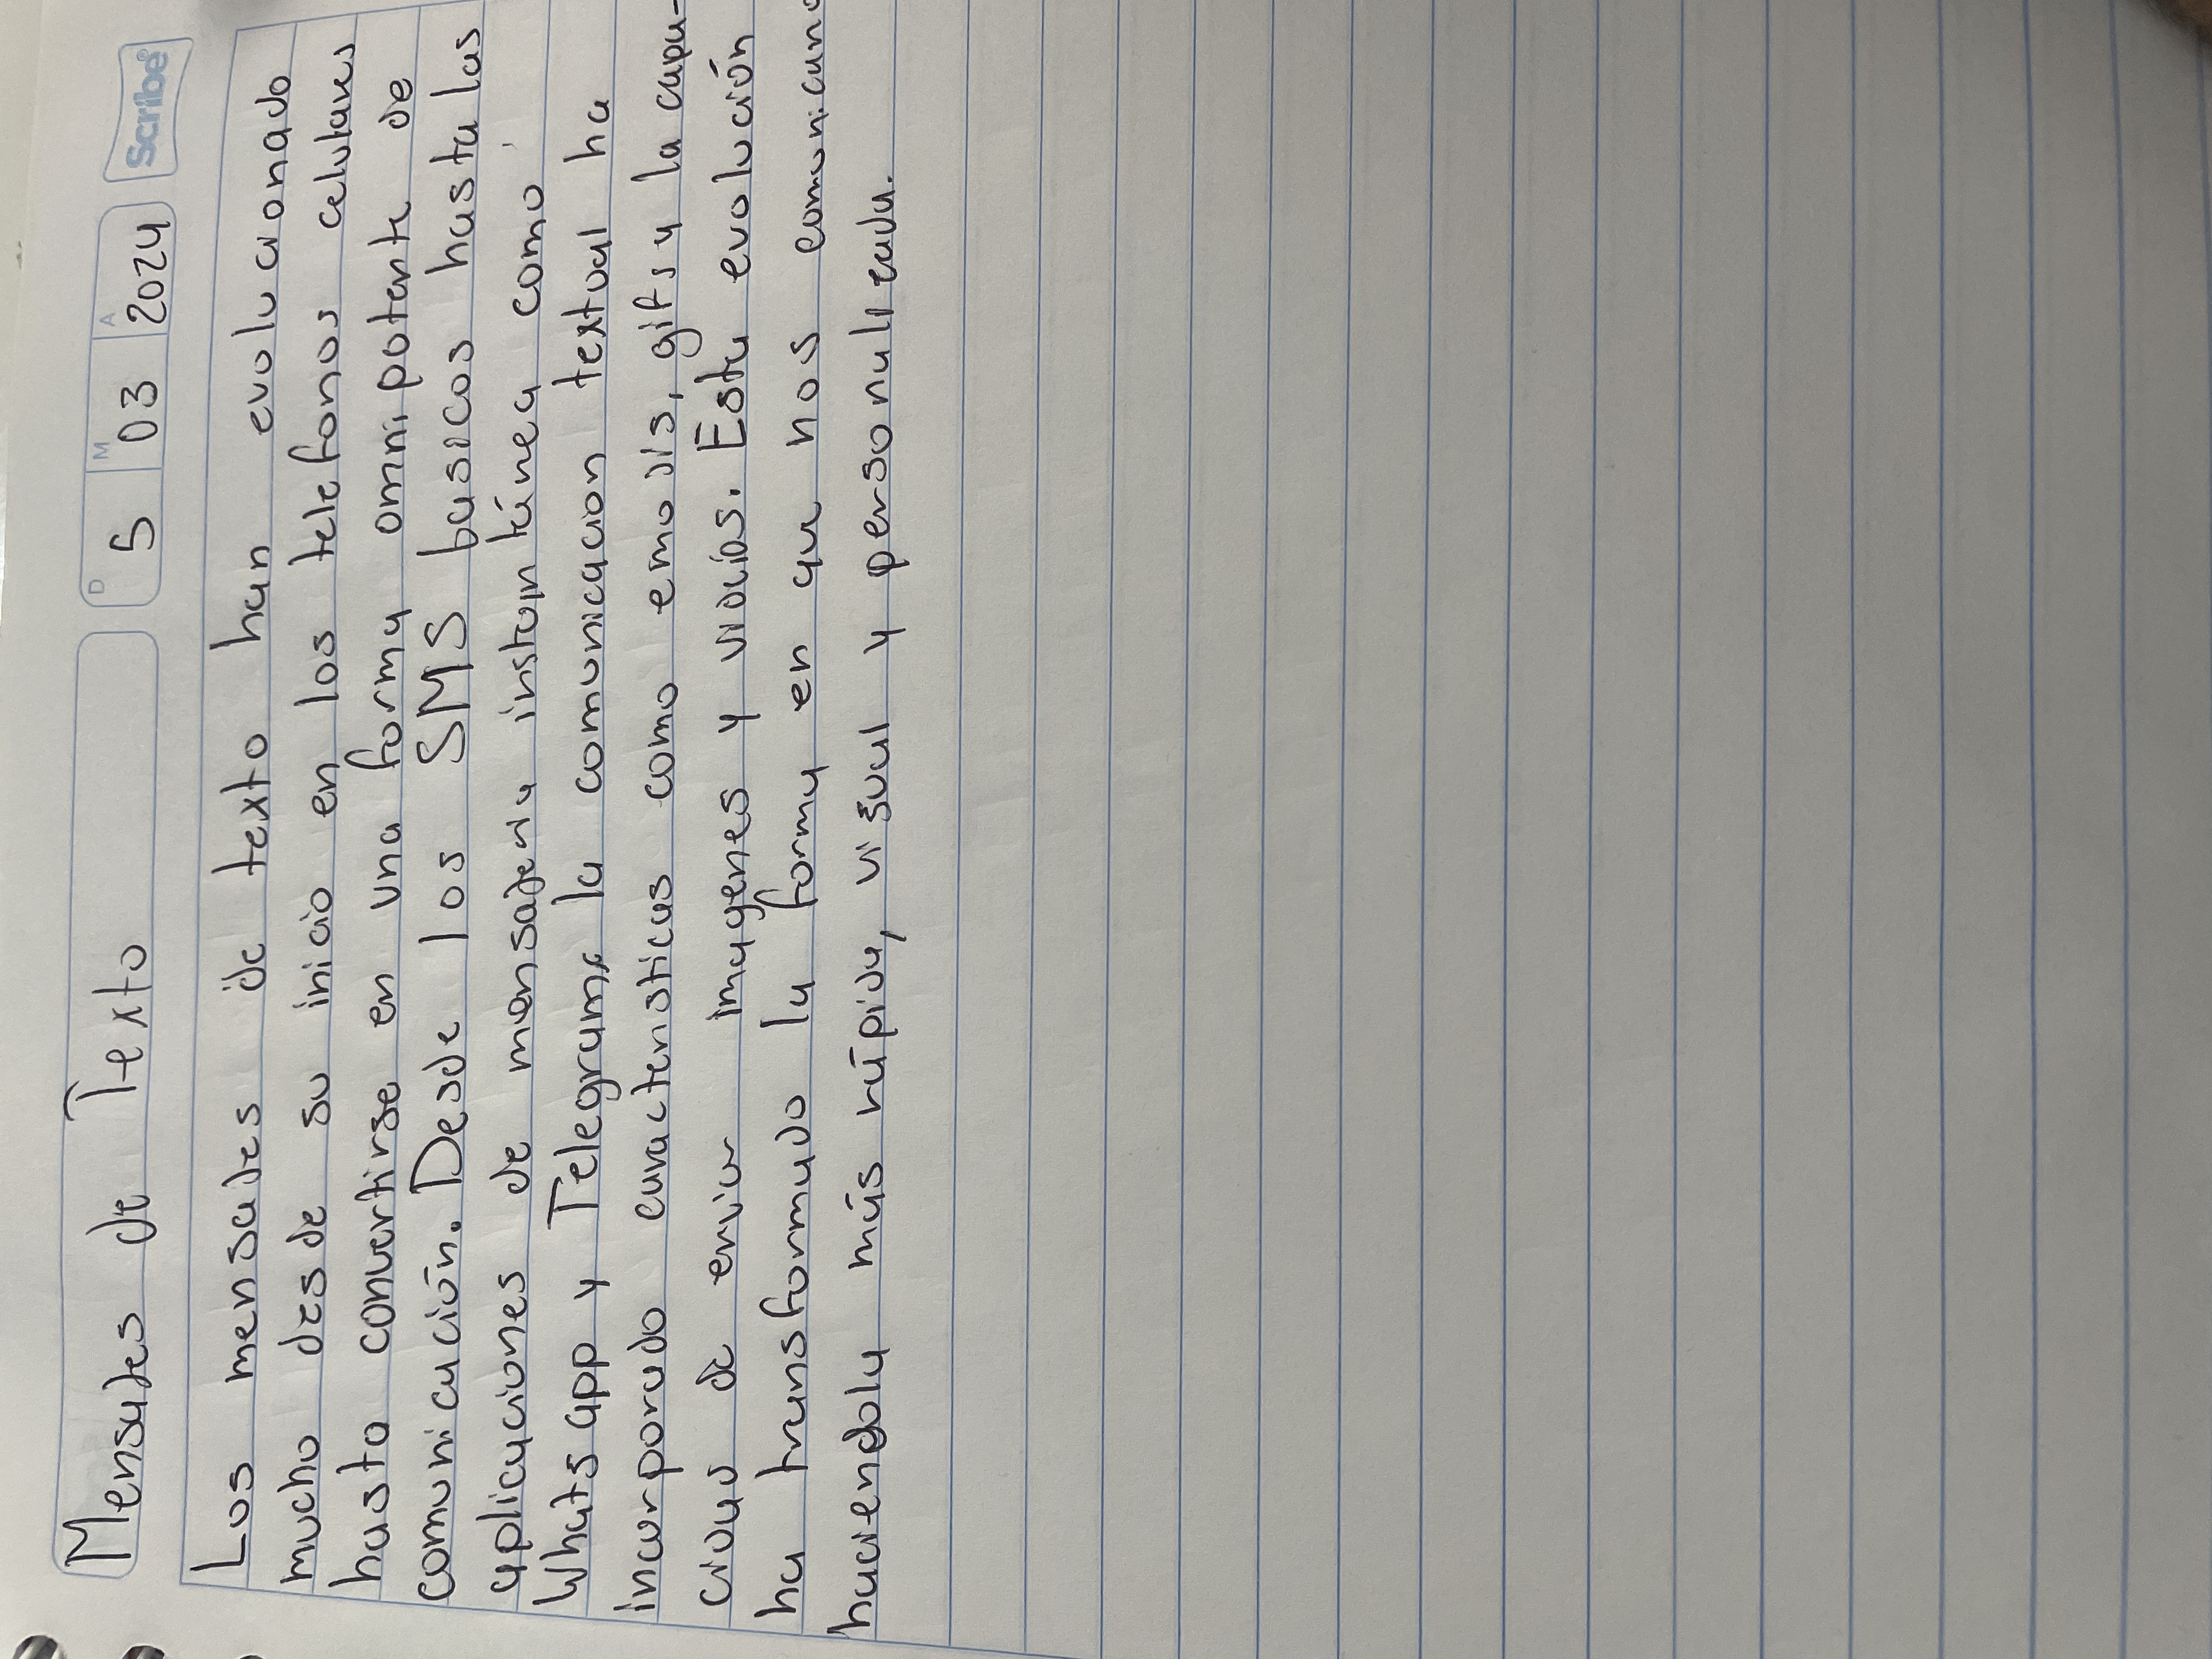 Mensajes de Texto
D 5 M 03 A 2024
Scribe
Los mensajes de texto han evolucionado
mucho desde su inicio en los telefonos celulares
hasta convertirse en una forma omnipotente de
comunicación. Desde los SMS basicos hasta las
aplicaciones de mensajeria instantánea como
Whatsapp y Telegrama la comunicacion textual ha
incorporado caracteristicas como emojis, gifs y la capa-
cidad de enviar imagenes y vidios. Esta evolución
ha transformado la forma en que nos comunicamo
haciendola más rápida, visual y personalizada.